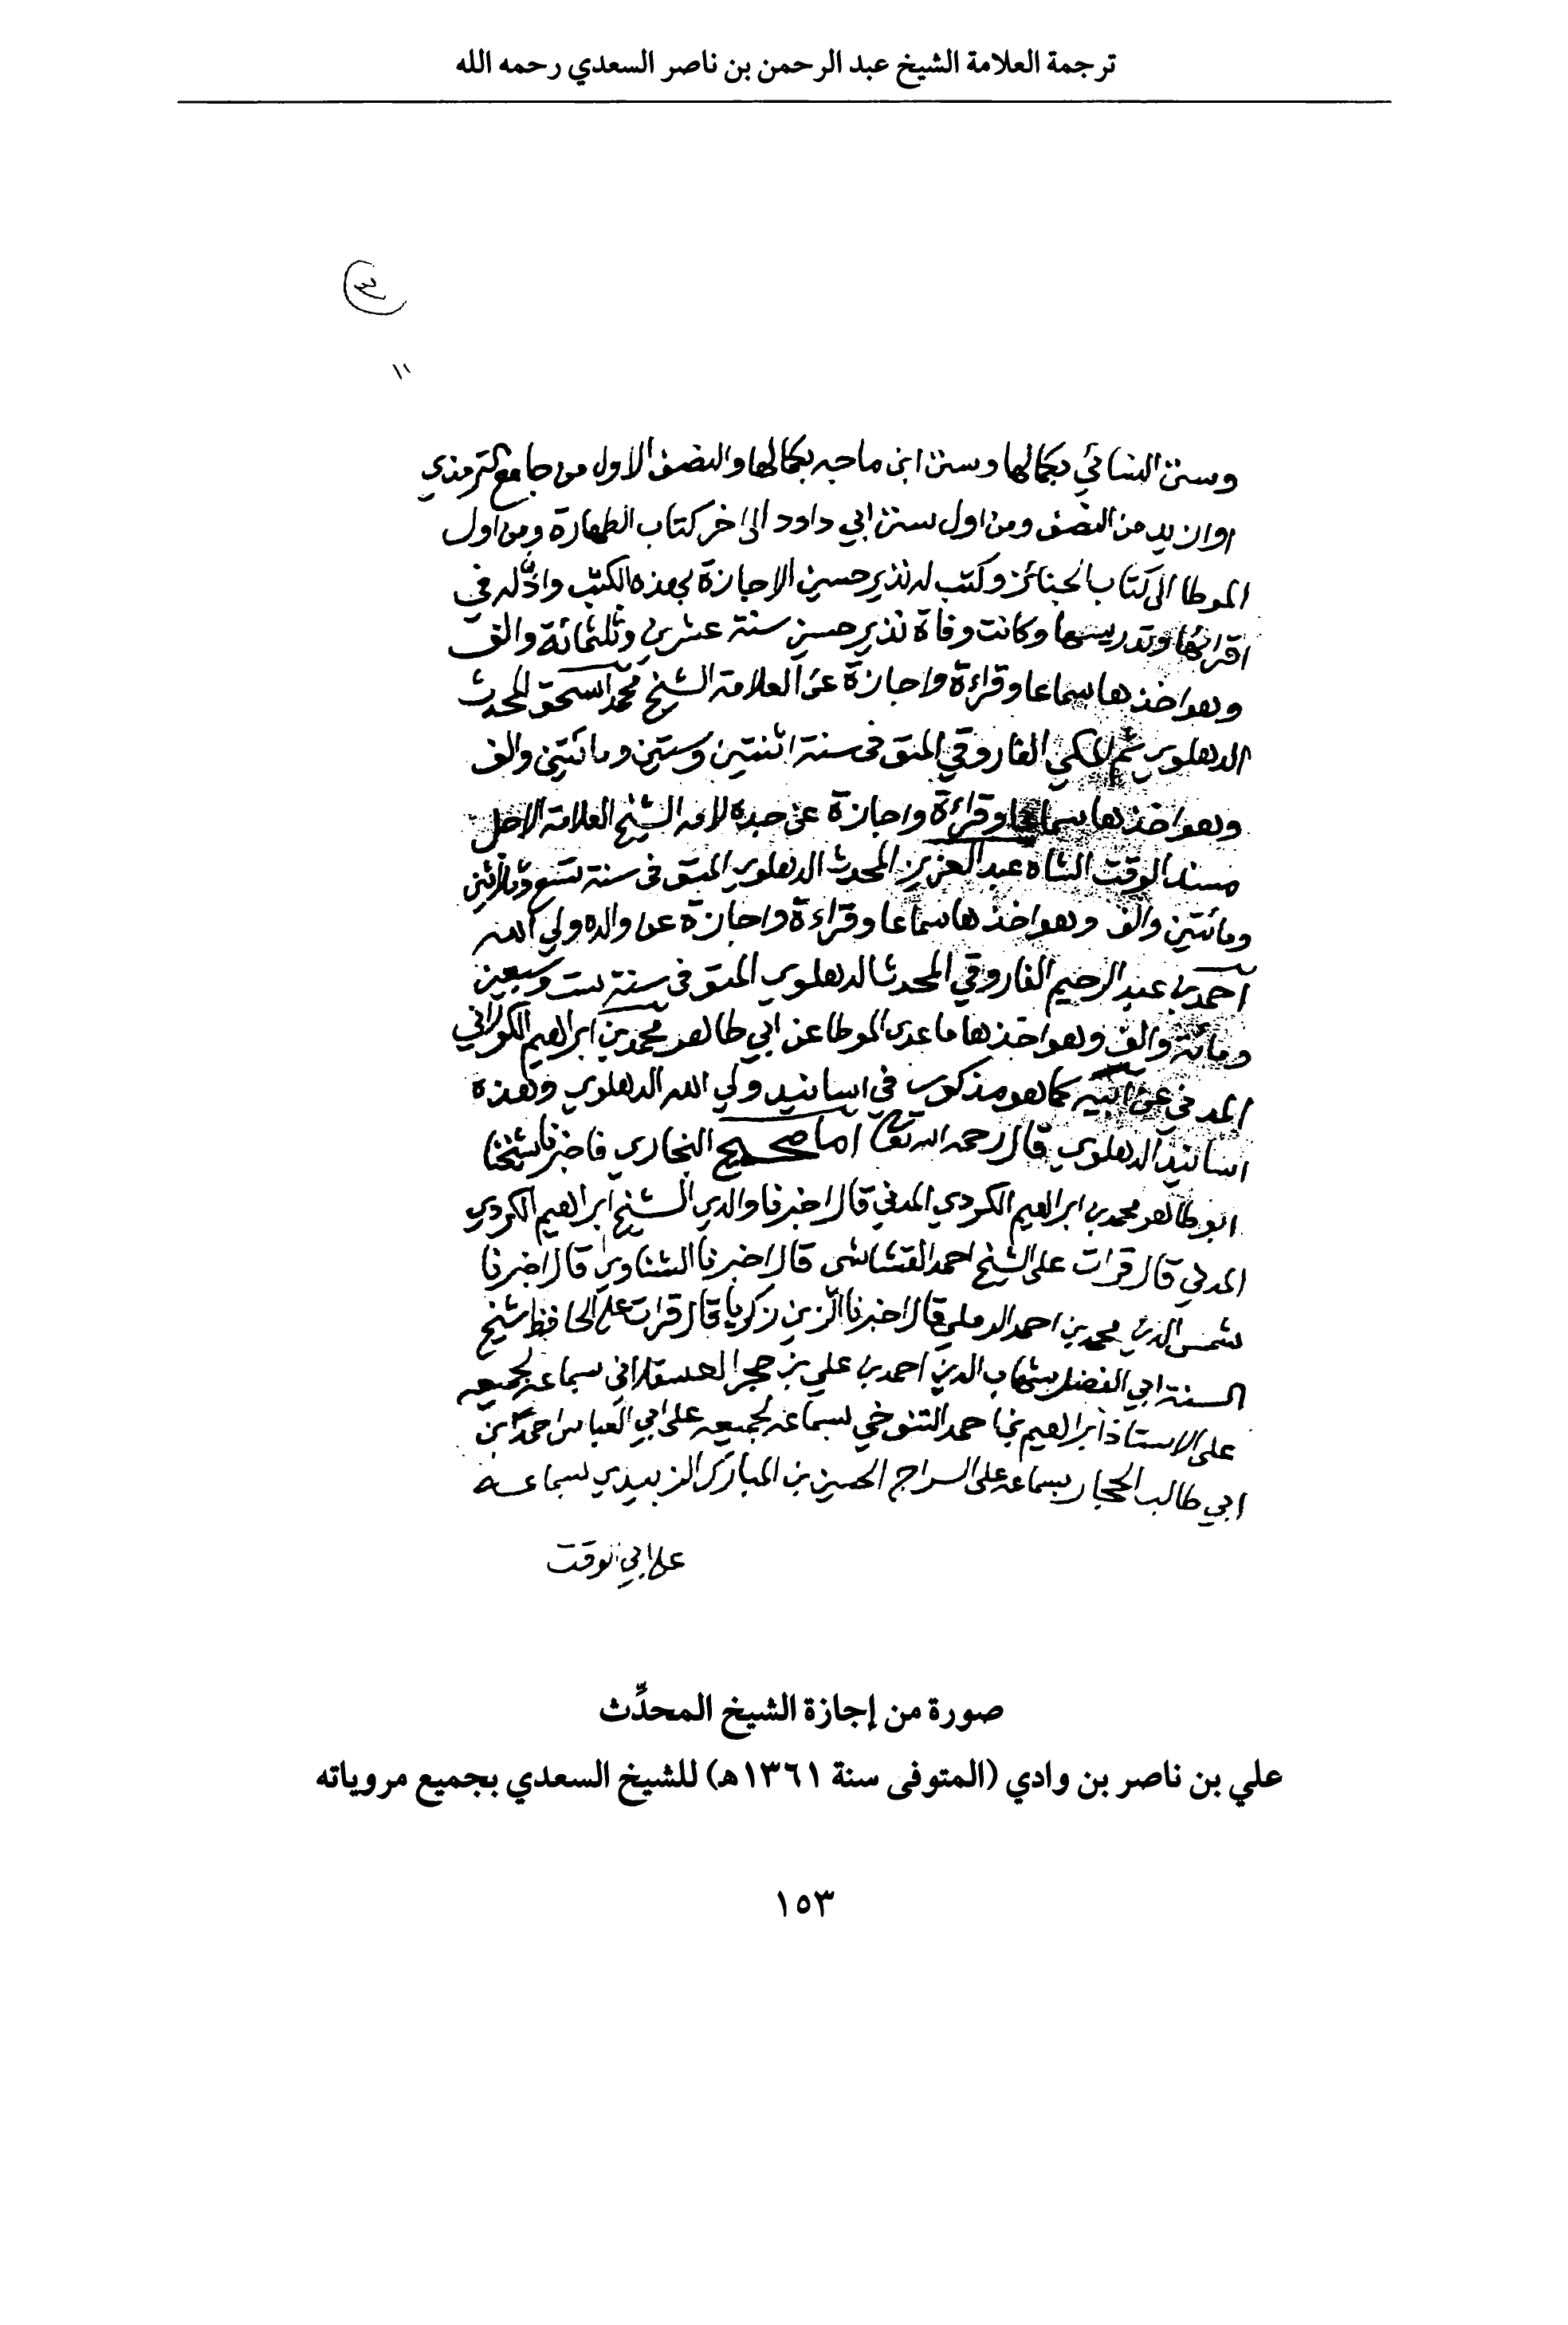 ترجمة العلامة الشيخ عبد الرحمن بن ناصر السعدي رحمه الله
وسنن النسائي بكمالها وسنن ابن ماجه بكمالها والنصف الاول من جامع الترمذي
او ازيد من النصف ومن اول سنن ابي داود الى اخر كتاب الطهارة ومن اول
الموطا الى كتاب الجنائز وكتب له نذير حسين الاجازة بهذه الكتب واذن له في
اقرائها وتدريسها وكانت وفاة نذير حسين سنة عشرين وثلثمائة والف
وهو اخذها سماعا وقراءة واجازة عن العلامة الشيخ محمد اسحق المحدث
الدهلوي ثم المكي الفاروقي المتوفى سنة اثنتين وستين ومائتين والف
وهو اخذها سماعا وقراءة واجازة عن جده لامه الشيخ العلامة الاجل
مسند الوقت الشاه عبد العزيز المحدث الدهلوي المتوفى سنة تسع وثلاثين
ومائتين والف وهو اخذها سماعا وقراءة واجازة عن والده ولي الله
احمد بن عبد الرحيم الفاروقي المحدث الدهلوي المتوفى سنة ست وسبعين
ومائة والف وهو اخذها ما عدى الموطا عن ابي طاهر محمد بن ابراهيم الكوراني
المدني عن ابيه كما هو مذكور في اسانيد ولي الله الدهلوي وهذه
اسانيد الدهلوي قال رحمه الله تعالى اما صحيح البخاري فاخبرنا شيخنا
ابو طاهر محمد بن ابراهيم الكردي المدني قال اخبرنا والدي الشيخ ابراهيم الكردي
المدني قال قرات على الشيخ احمد القشاشي قال اخبرنا الشناوي قال اخبرنا
شمس الدين محمد بن احمد الرملي قال اخبرنا الزين زكريا قال قرات على الحافظ شيخ
السنة ابي الفضل شهاب الدين احمد بن علي بن حجر العسقلاني سماعه لجميعه
على الاستاذ ابراهيم بن احمد التنوخي بسماعه لجميعه على ابي العباس احمد بن
ابي طالب الحجار بسماعه على السراج الحسين بن المبارك الزبيدي بسماعه
على ابي الوقت
صورة من إجازة الشيخ المحدِّث
علي بن ناصر بن وادي (المتوفى سنة ١٣٦١هـ) للشيخ السعدي بجميع مروياته
١٥٣